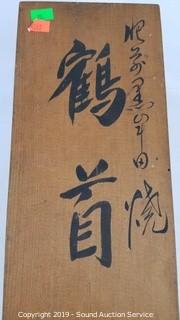 肥前黒牟田焼
鶴首
Copyright 2019 - Sound Auction Service